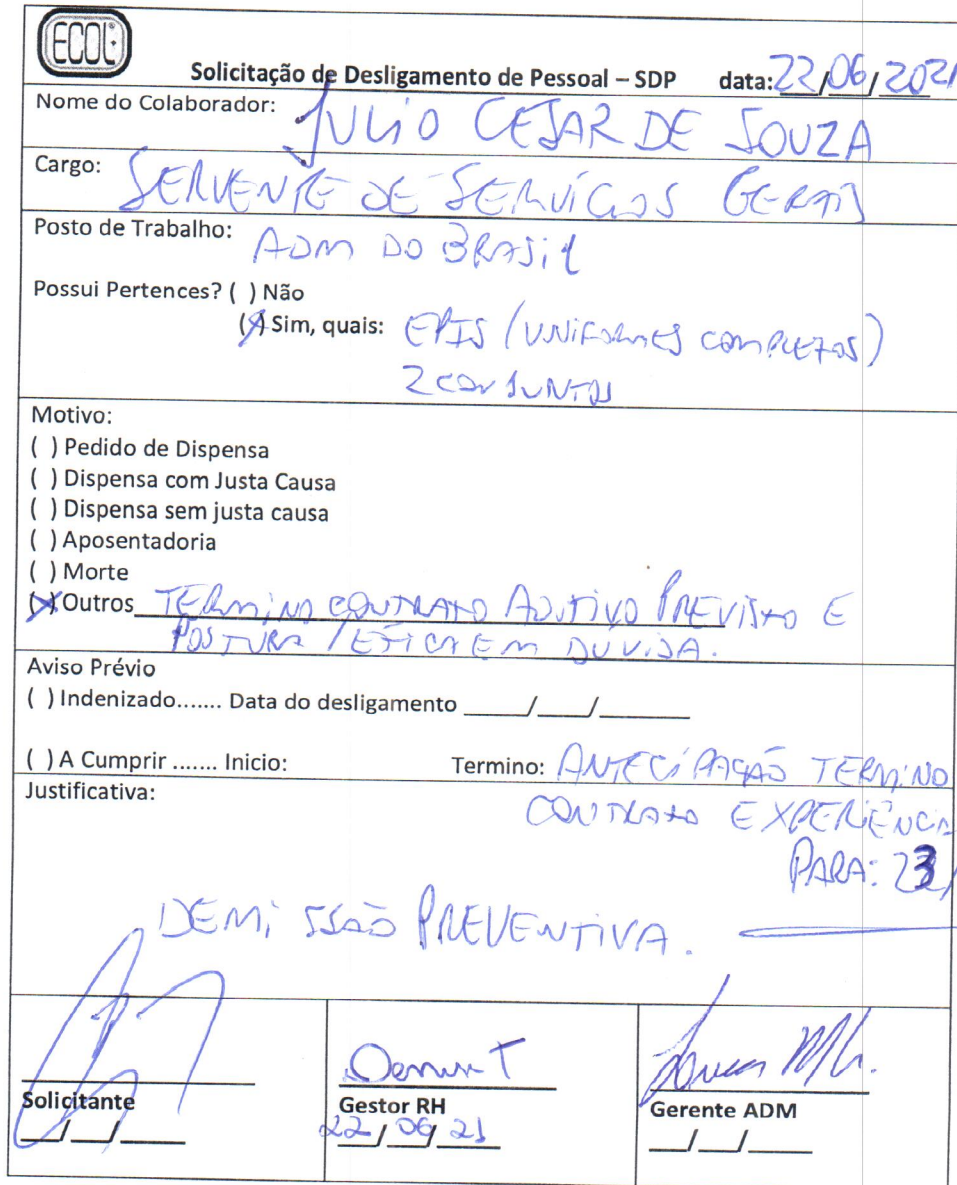 ECOL
Solicitação de Desligamento de Pessoal – SDP data: 22/06/2021
Nome do Colaborador: JULIO CESAR DE SOUZA
Cargo: SERVENTE DE SERVIÇOS GERAIS
Posto de Trabalho: ADM DO BRASIL
Possui Pertences? ( ) Não
(X) Sim, quais: EPIS (UNIFORMES COMPLETOS)
2 CONJUNTOS
Motivo:
( ) Pedido de Dispensa
( ) Dispensa com Justa Causa
( ) Dispensa sem justa causa
( ) Aposentadoria
( ) Morte
(X) Outros TERMINO CONTRATO ADITIVO PREVISTO E
POSTURA / ÉTICA EM DÚVIDA.
Aviso Prévio
( ) Indenizado....... Data do desligamento ____/____/______
( ) A Cumprir ....... Inicio: Termino: ANTECIPAÇÃO TERMINO
Justificativa: CONTRATO EXPERIÊNCIA
PARA: 23/
DEMISSÃO PREVENTIVA.
Solicitante
__/__/____
Gestor RH
22/06/21
Gerente ADM
__/__/____